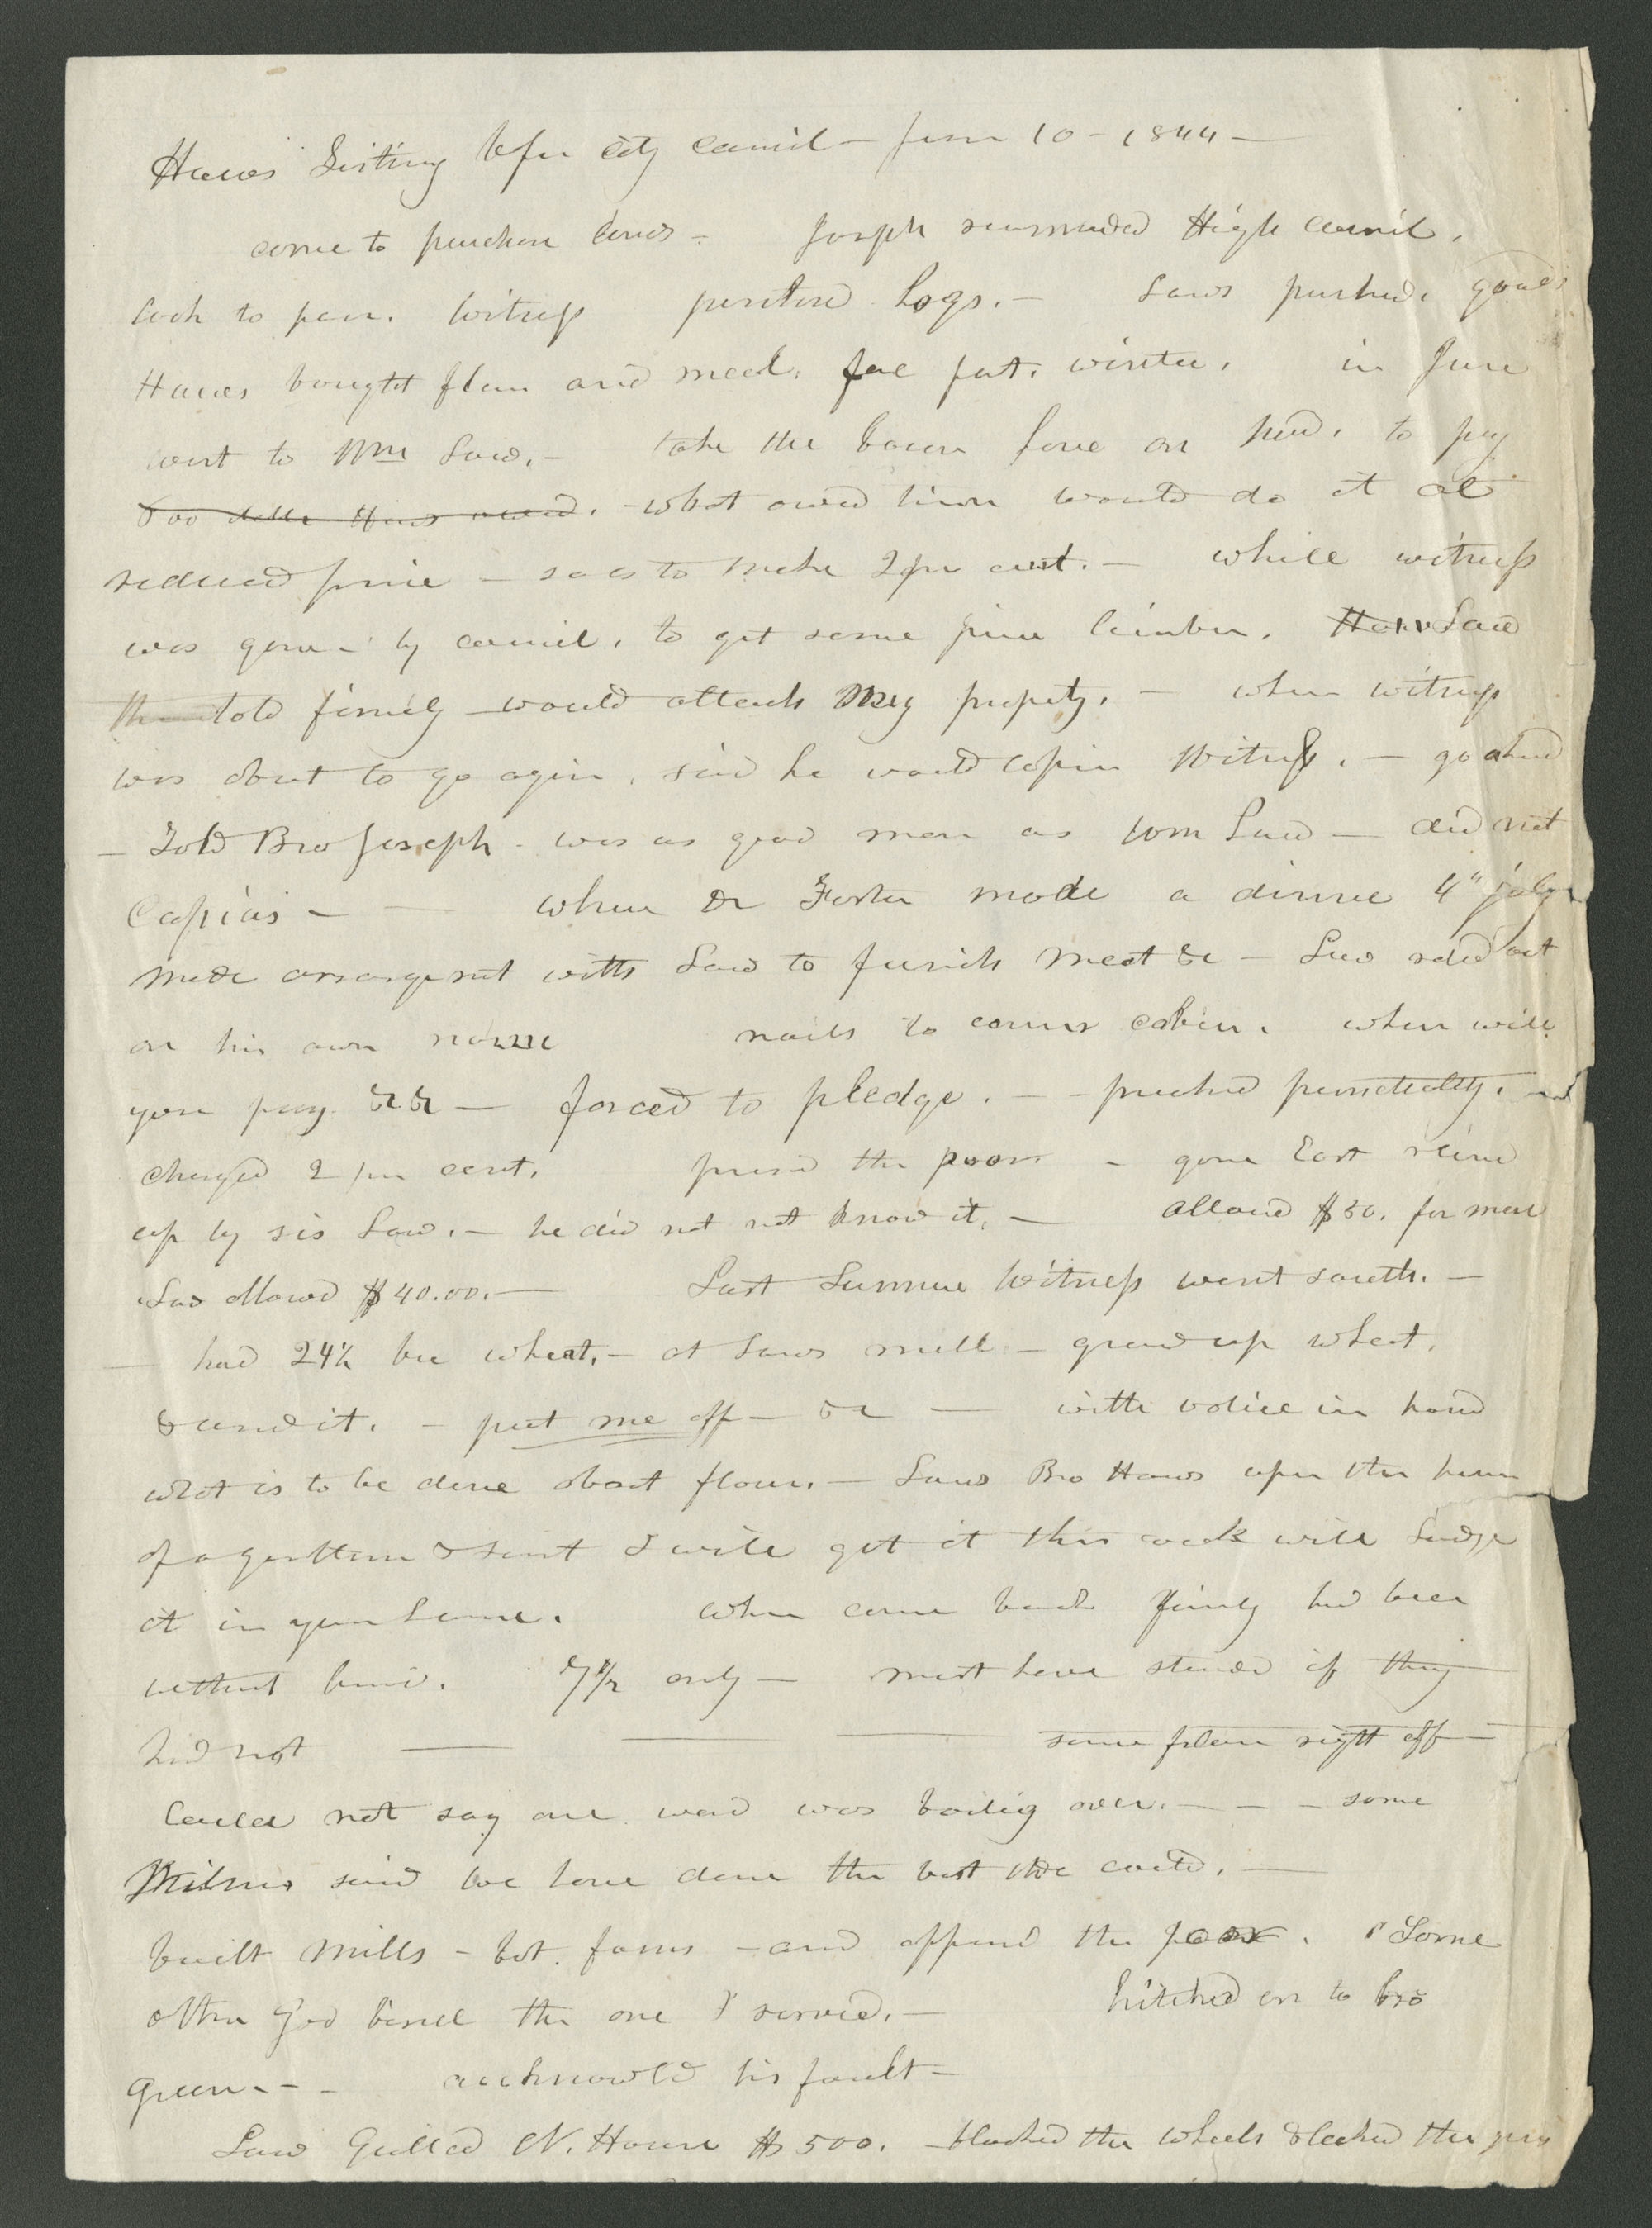 Haws Sisting befor city council — June 10 - 1844 —
come to purchase lands - Joseph recommended High council,
look to poor. Witness purchased Hogs. — Laws purchased. goods
Haws bought flour and meal, for past winter, in June
went to Wm Law. — take the bacon have on hand, to pay
what owed him would do it at
reduced price — so as to make 2 per cent. — while witness
was gone - by council, to get some pine lumber. Law
told family would attach my property. — when witness
was about to go again, said he would capius Witness. — go ahead
— Told Bro Joseph - was as good man as Wm Law — did not
Capias — — when Dr Foster made a dinner 4" July
made arrangement with Law to furnish meat &c — Law ruled out
on his own name nails to corner cabin. when will
you pay. &c &c — forced to pledge. — - preached punctuality. and
charged 2 per cent. the poor - gone East
up by sis Law. — he did not not know it. — allowed $30. for
Law allowed $40.00. — Last Summer Witness went south. —
— had 24½ bu wheat, — at Laws mill — ground up wheat,
& used it. — put me off — &c — with in hand
what is to be done about flour. — Laws Bro Haws upon the honor
of a gentleman & saint I will get it this week will Lodge
it in your house. when came back family had been
without bread. 7½ only — must have starved if they
had not — — — some flour right off —
Could not say one word was boiling over. — — - some
said we have done the best we could. —
built Mills — bot farms — and oppressed the poor. " Some
other God beside the one I served. — hitched on to bro
Green. - - acknowld his fault —
Law Gulled N. House $500. — blocked the wheels &